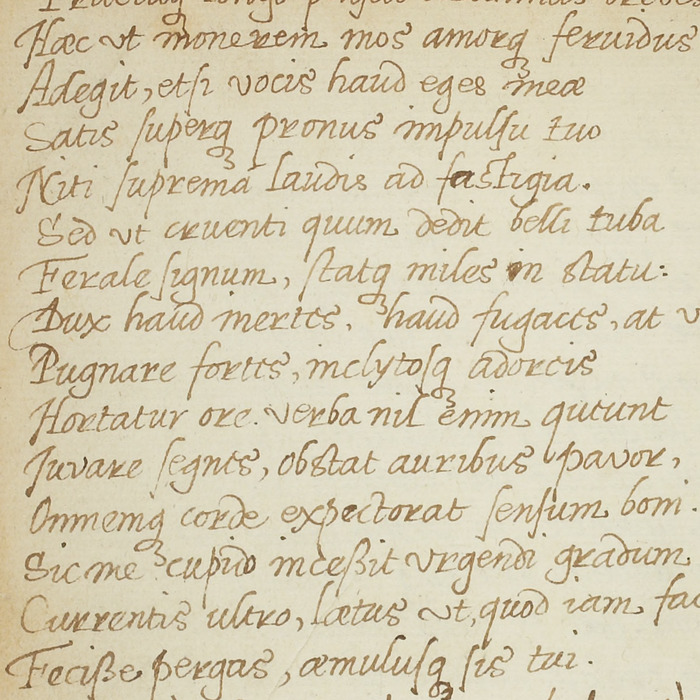 Hæc vt monerem mos amorq feruidus
Adegit, etsi vocis haud eges meæ
Satis superq pronus impulsu tuo
Niti suprema laudis ad fastigia.
Sed vt cruenti quum dedit belli tuba
Ferale signum, statq miles in statu:
Dux haud inertes, haud fugaces, at
Pugnare fortes, inclytosq adorcis
Hortatur ore. verba nil enim queunt
Juvare segnes, obstat auribus pavor,
Omnemq corde expectorat sensum boni.
Sic me cupido inceßit vrgendi gradum
Currentis ultro, lætus vt, quod iam
Feciße pergas, æmulusq sis tui.